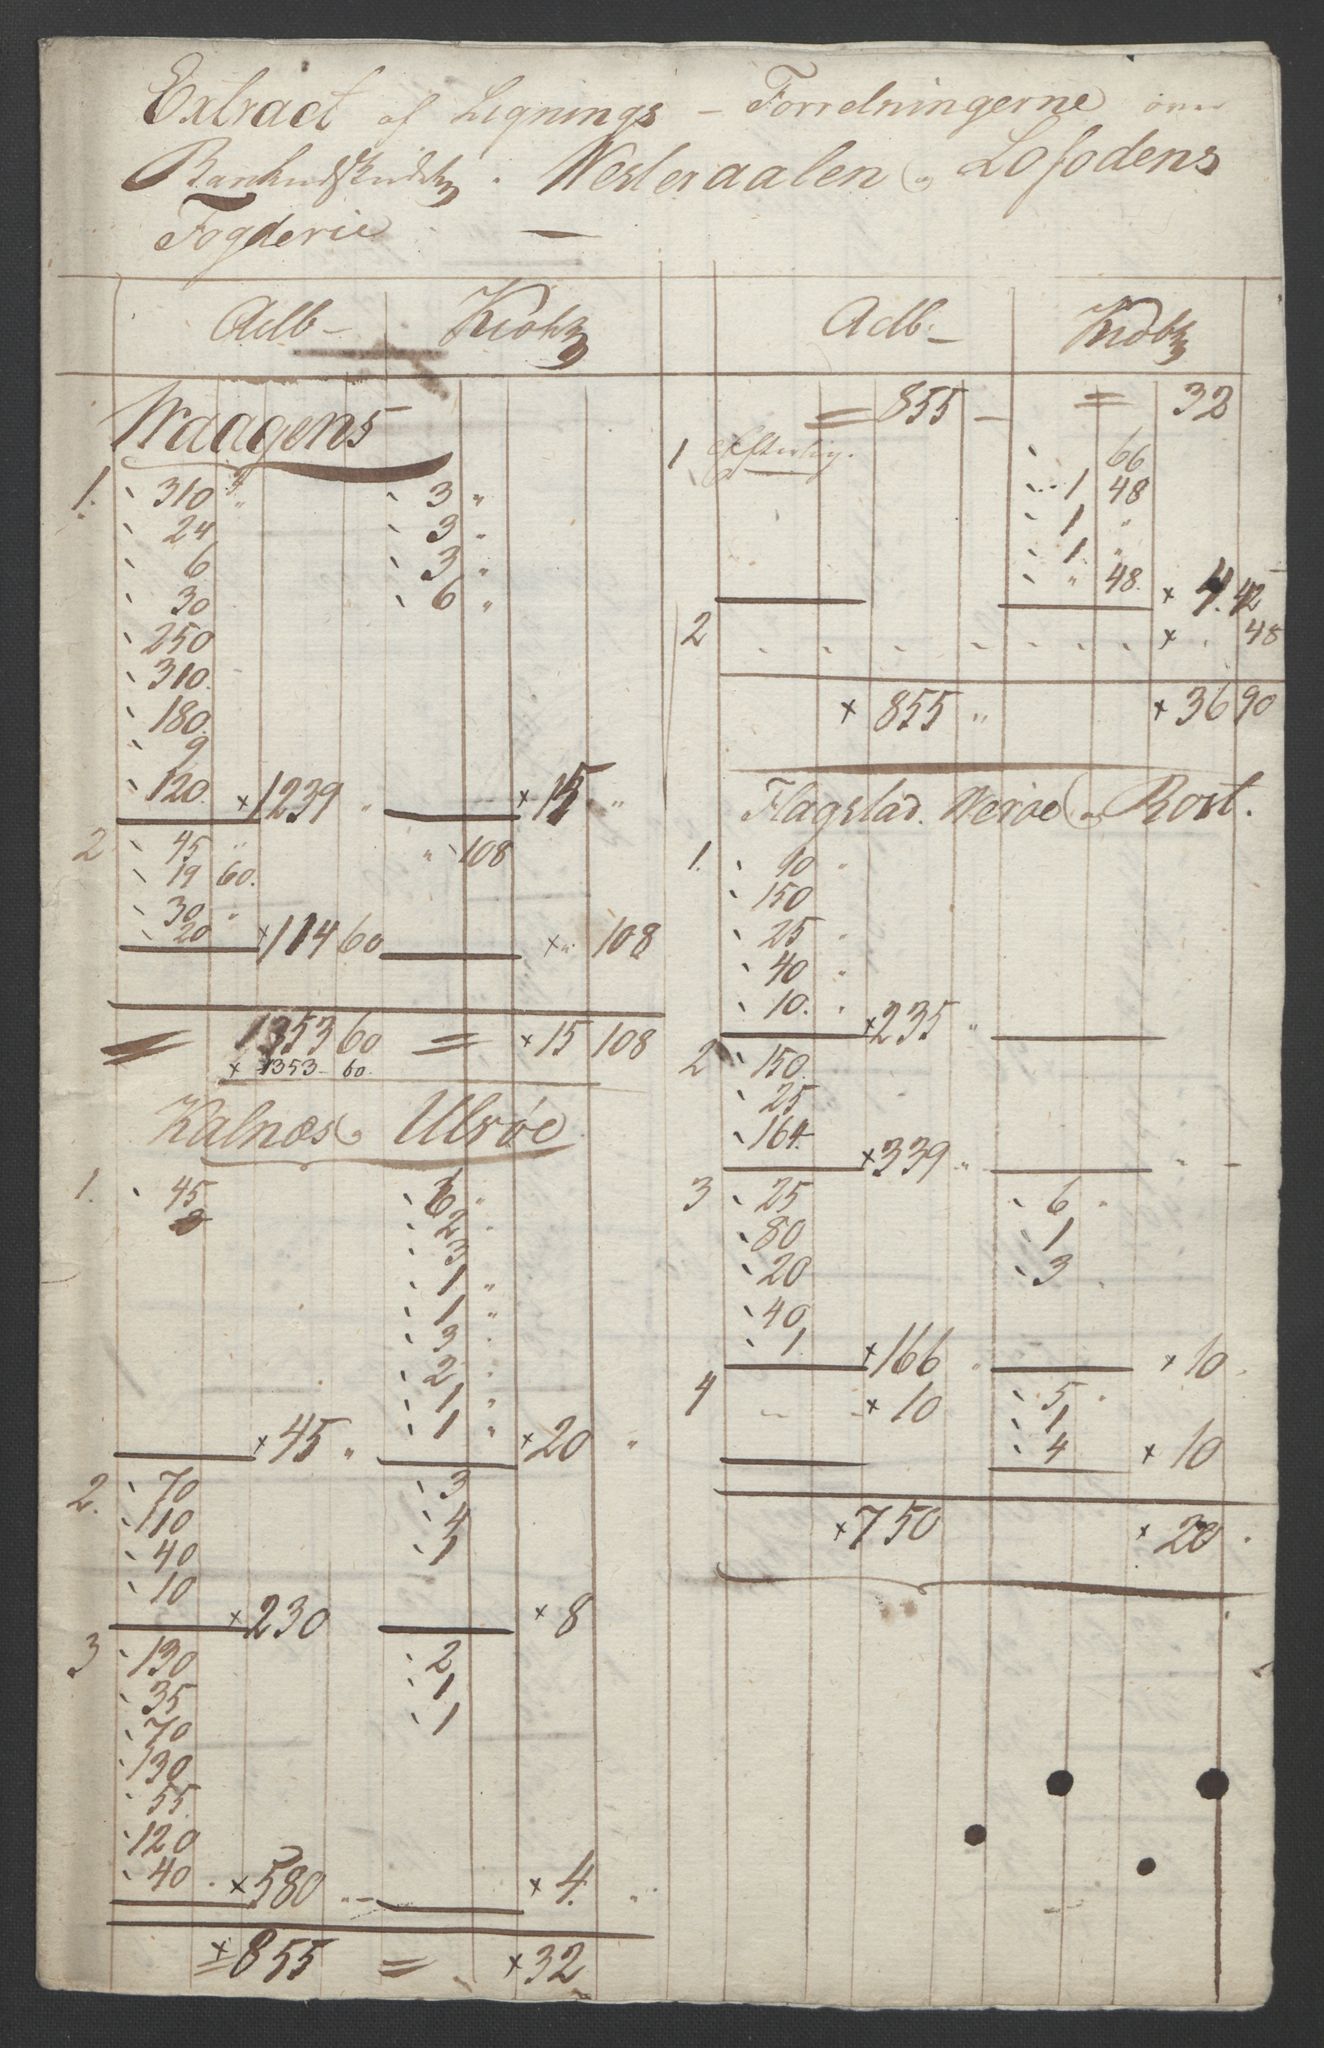 Extract af Lignings - Forretningerne over
Vesteraalen & Lofodens
Fogderie —
Adb -
Adb -
Waagens
1. 310 3 "
24 3 "
6 3 "
30 6 "
250
310
180
9
120 × 1239 " × 15 "
2 45 " " 108
19 60
30 "
20 × 114 60 × " 108
= 1353 60 = × 15 108
× 1353 - 60
Kalnæs & Ulvøe
1. 45 6 "
2 "
3
1 "
1 "
3
2 "
1 "
1 "
× 45 " × 20 "
2. 70 3
110 4
40 1
10
× 230 × 8
3 130 2
35 1
70 1
130
55
120
40 × 580 " × 4 "
× 855 = × 32
= 855 - = 32
1 Efterlig.
66
1 48
1 "
1 "
" 48 × 4. 42
2 × " 48
× 855 " × 36 90
Flagstad. Werøe & Rost.
1. 10 "
150
25 "
40 "
10. " × 235 "
2 150
25
164 × 339 "
3 25 6 "
80 1
20 3
40
1
× 166 × 10
4 × 10 5
1
4 × 10
× 750 × 20